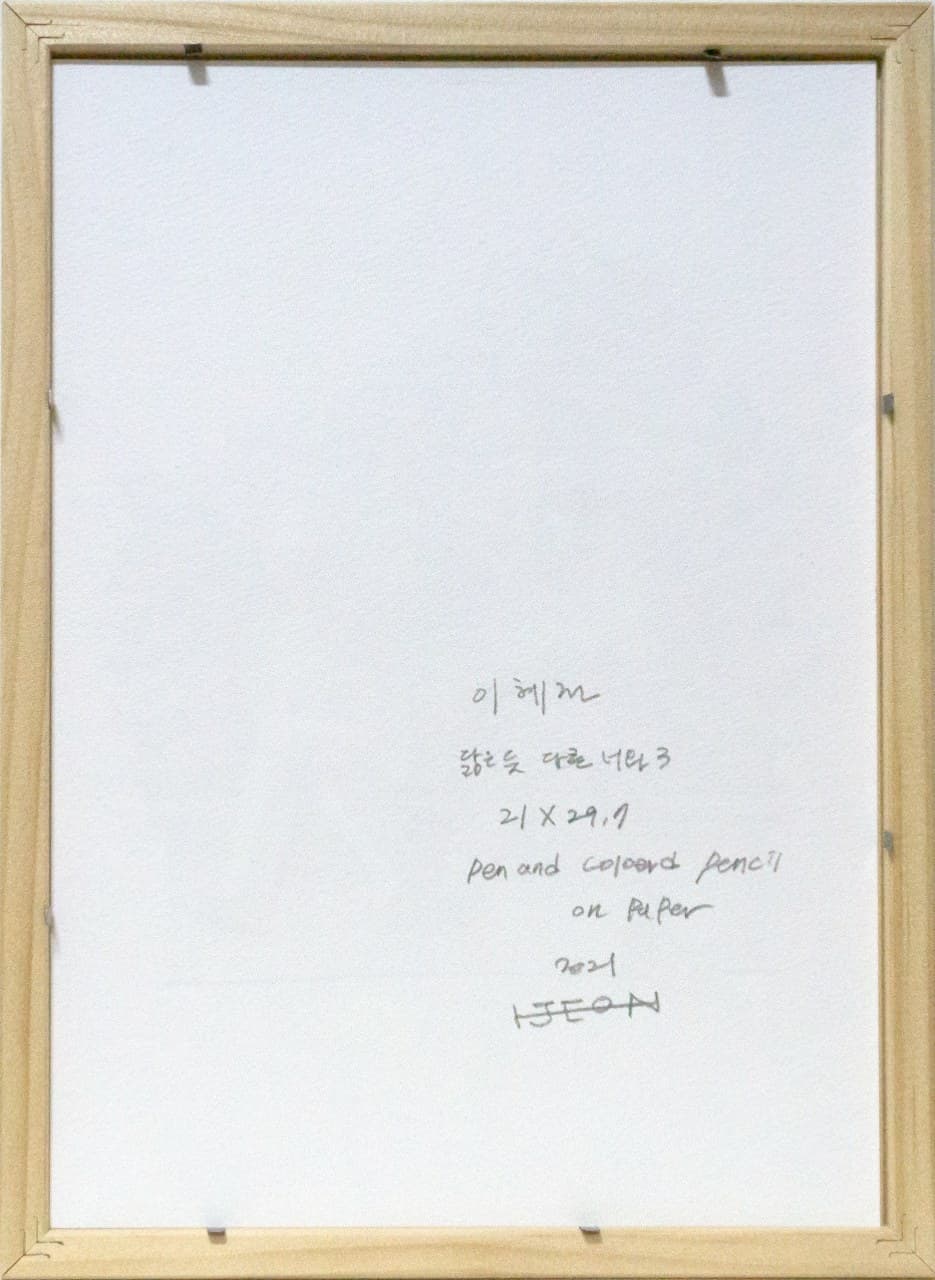 이혜전
닮은 듯 다른 너와 3
21 X 29.7
pen and colored pencil
on paper
2021
IJEON